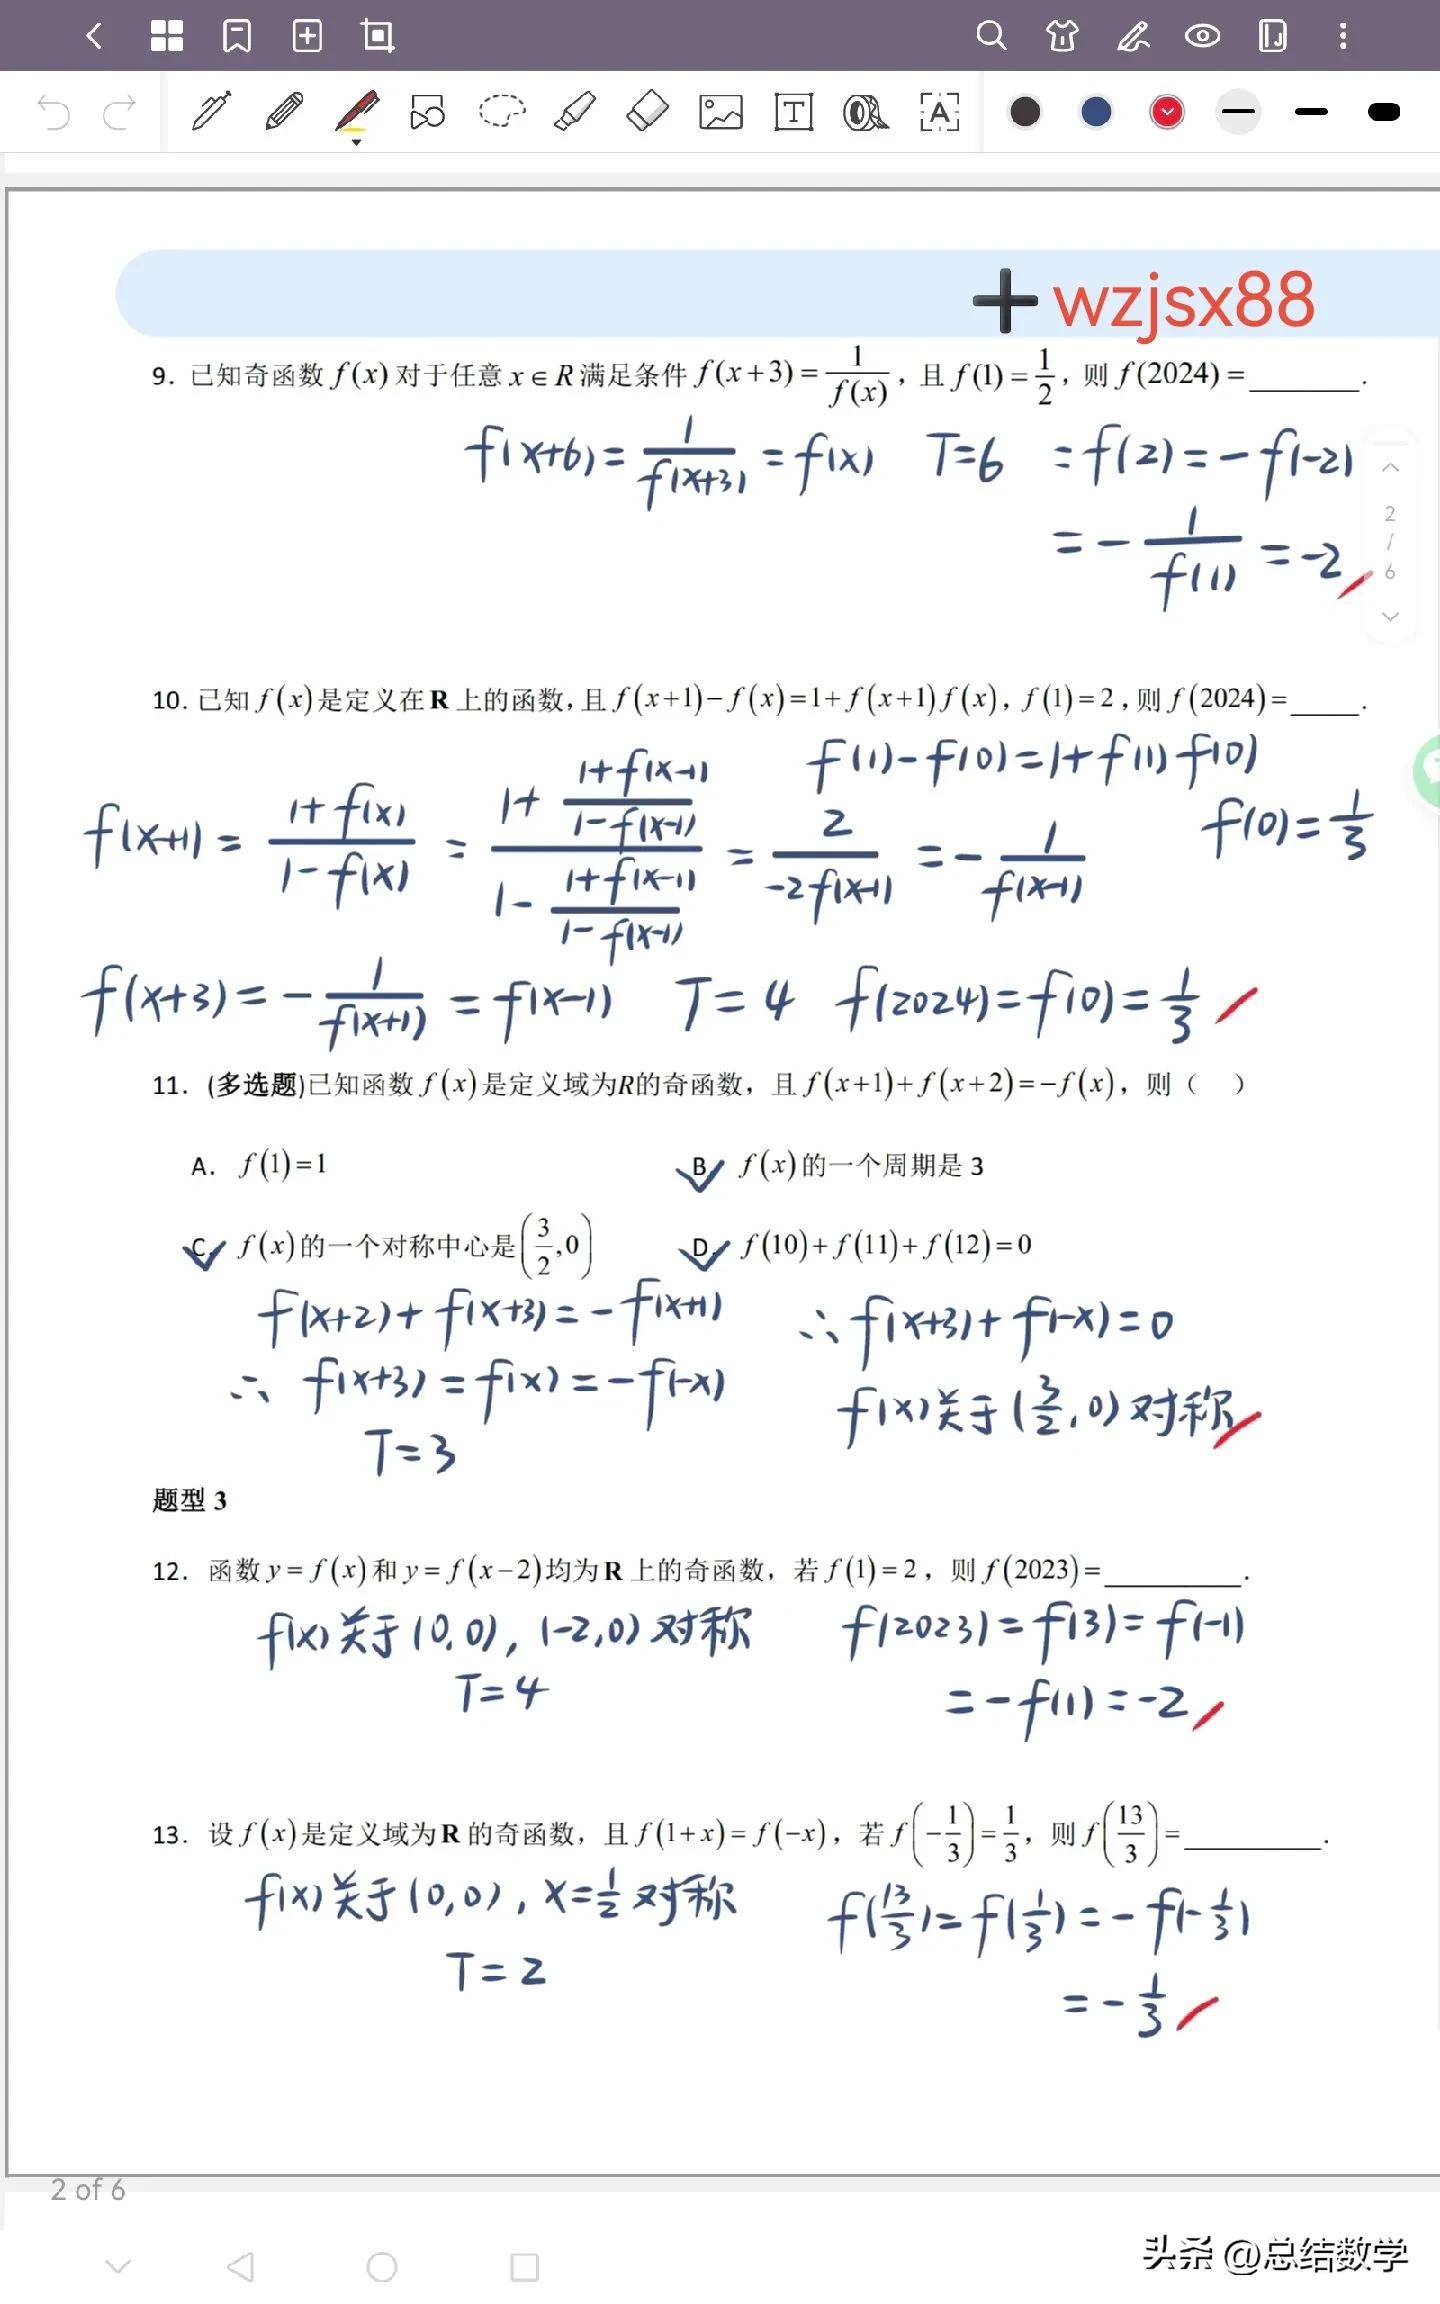 ➕wzjsx88
9. 已知奇函数 f(x) 对于任意 x∈R 满足条件 f(x+3) = 1/f(x)，且 f(1) = 1/2，则 f(2024) = ________.
f(x+6) = 1/f(x+3) = f(x) T=6 = f(2) = -f(-2)
= -1/f(1) = -2
2
/
6
10. 已知 f(x) 是定义在 R 上的函数，且 f(x+1)-f(x)=1+f(x+1)f(x)，f(1)=2，则 f(2024)=_____.
f(1)-f(0)=1+f(1)f(0)
f(x+1) = (1+f(x))/(1-f(x)) = (1+(1+f(x-1))/(1-f(x-1)))/(1-(1+f(x-1))/(1-f(x-1))) = 2/(-2f(x-1)) = -1/f(x-1) f(0)=1/3
f(x+3) = -1/f(x+1) = f(x-1) T=4 f(2024)=f(0)=1/3
11. (多选题)已知函数 f(x) 是定义域为R的奇函数，且 f(x+1)+f(x+2)=-f(x)，则（ ）
A. f(1)=1 B. f(x)的一个周期是 3
C. f(x)的一个对称中心是(3/2,0) D. f(10)+f(11)+f(12)=0
f(x+2)+f(x+3)=-f(x+1) ∴ f(x+3)+f(-x)=0
∴ f(x+3)=f(x)=-f(-x) f(x)关于(3/2,0)对称
T=3
题型 3
12. 函数 y=f(x)和 y=f(x-2)均为 R 上的奇函数，若 f(1)=2，则 f(2023)=__________.
f(x)关于(0,0),(-2,0)对称 f(2023)=f(3)=f(-1)
T=4 =-f(1)=-2
13. 设 f(x)是定义域为 R 的奇函数，且 f(1+x)=f(-x)，若 f(-1/3)=1/3，则 f(13/3)=__________.
f(x)关于(0,0),x=1/2对称 f(13/3)=f(1/3)=-f(-1/3)
T=2 =-1/3
2 of 6
头条 @总结数学